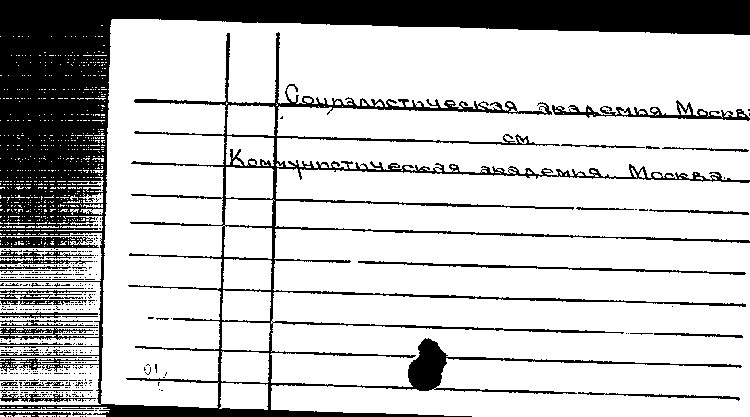 Социалистическая академия. Москва
см.
Коммунистическая академия. Москва.